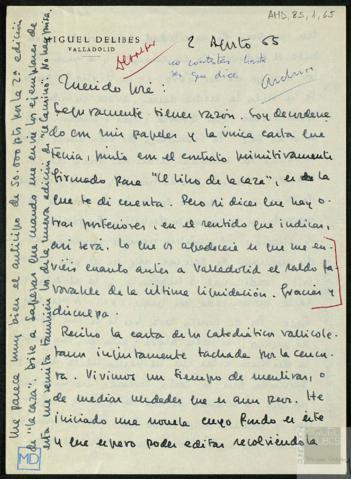 AMD, 85, 1, 65
MIGUEL DELIBES
VALLADOLID
2 Agosto 65
no contestar hasta
ver que dice
Archivo
Querido José:
Seguramente tienes razón. Soy desordena
do con mis papeles y la única carta que
tenía, junto con el contrato primitivamente
firmado para "El libro de la caza", es de la
que te di cuenta. Pero si dices que hay o-
tras posteriores, en el sentido que indicas,
así será. Lo que os agradecería es que me en-
viéis cuanto antes a Valladolid el saldo fa-
vorable de la última liquidación. Gracias y
disculpa.
Recibo la carta de los catedráticos vallisole-
tanos injustamente tachada por la censu-
ra. Vivimos un tiempo de mentiras, o
de medias verdades que es aún peor. He
iniciado una novela cuyo fondo es éste
y que espero poder editar resolviéndola
Me parece muy bien el anticipo de 50.000 pts por la 2ª edición
de "La caza". Dile a que cuando me envíe los ejemplares de
esta me remita también los de la nueva edición de "El camino". No hay prisa.
MD